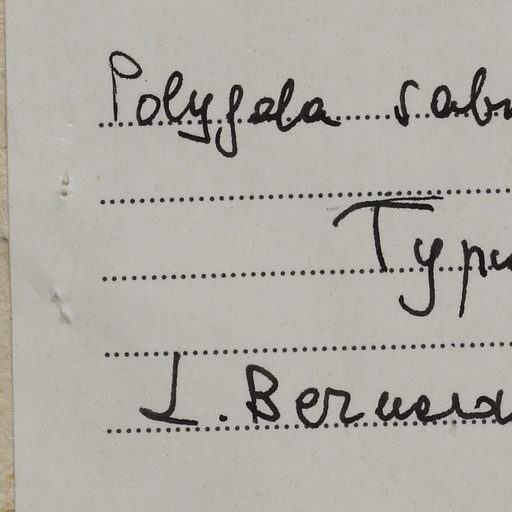 Polygala sabu
Typu
L. Bernard